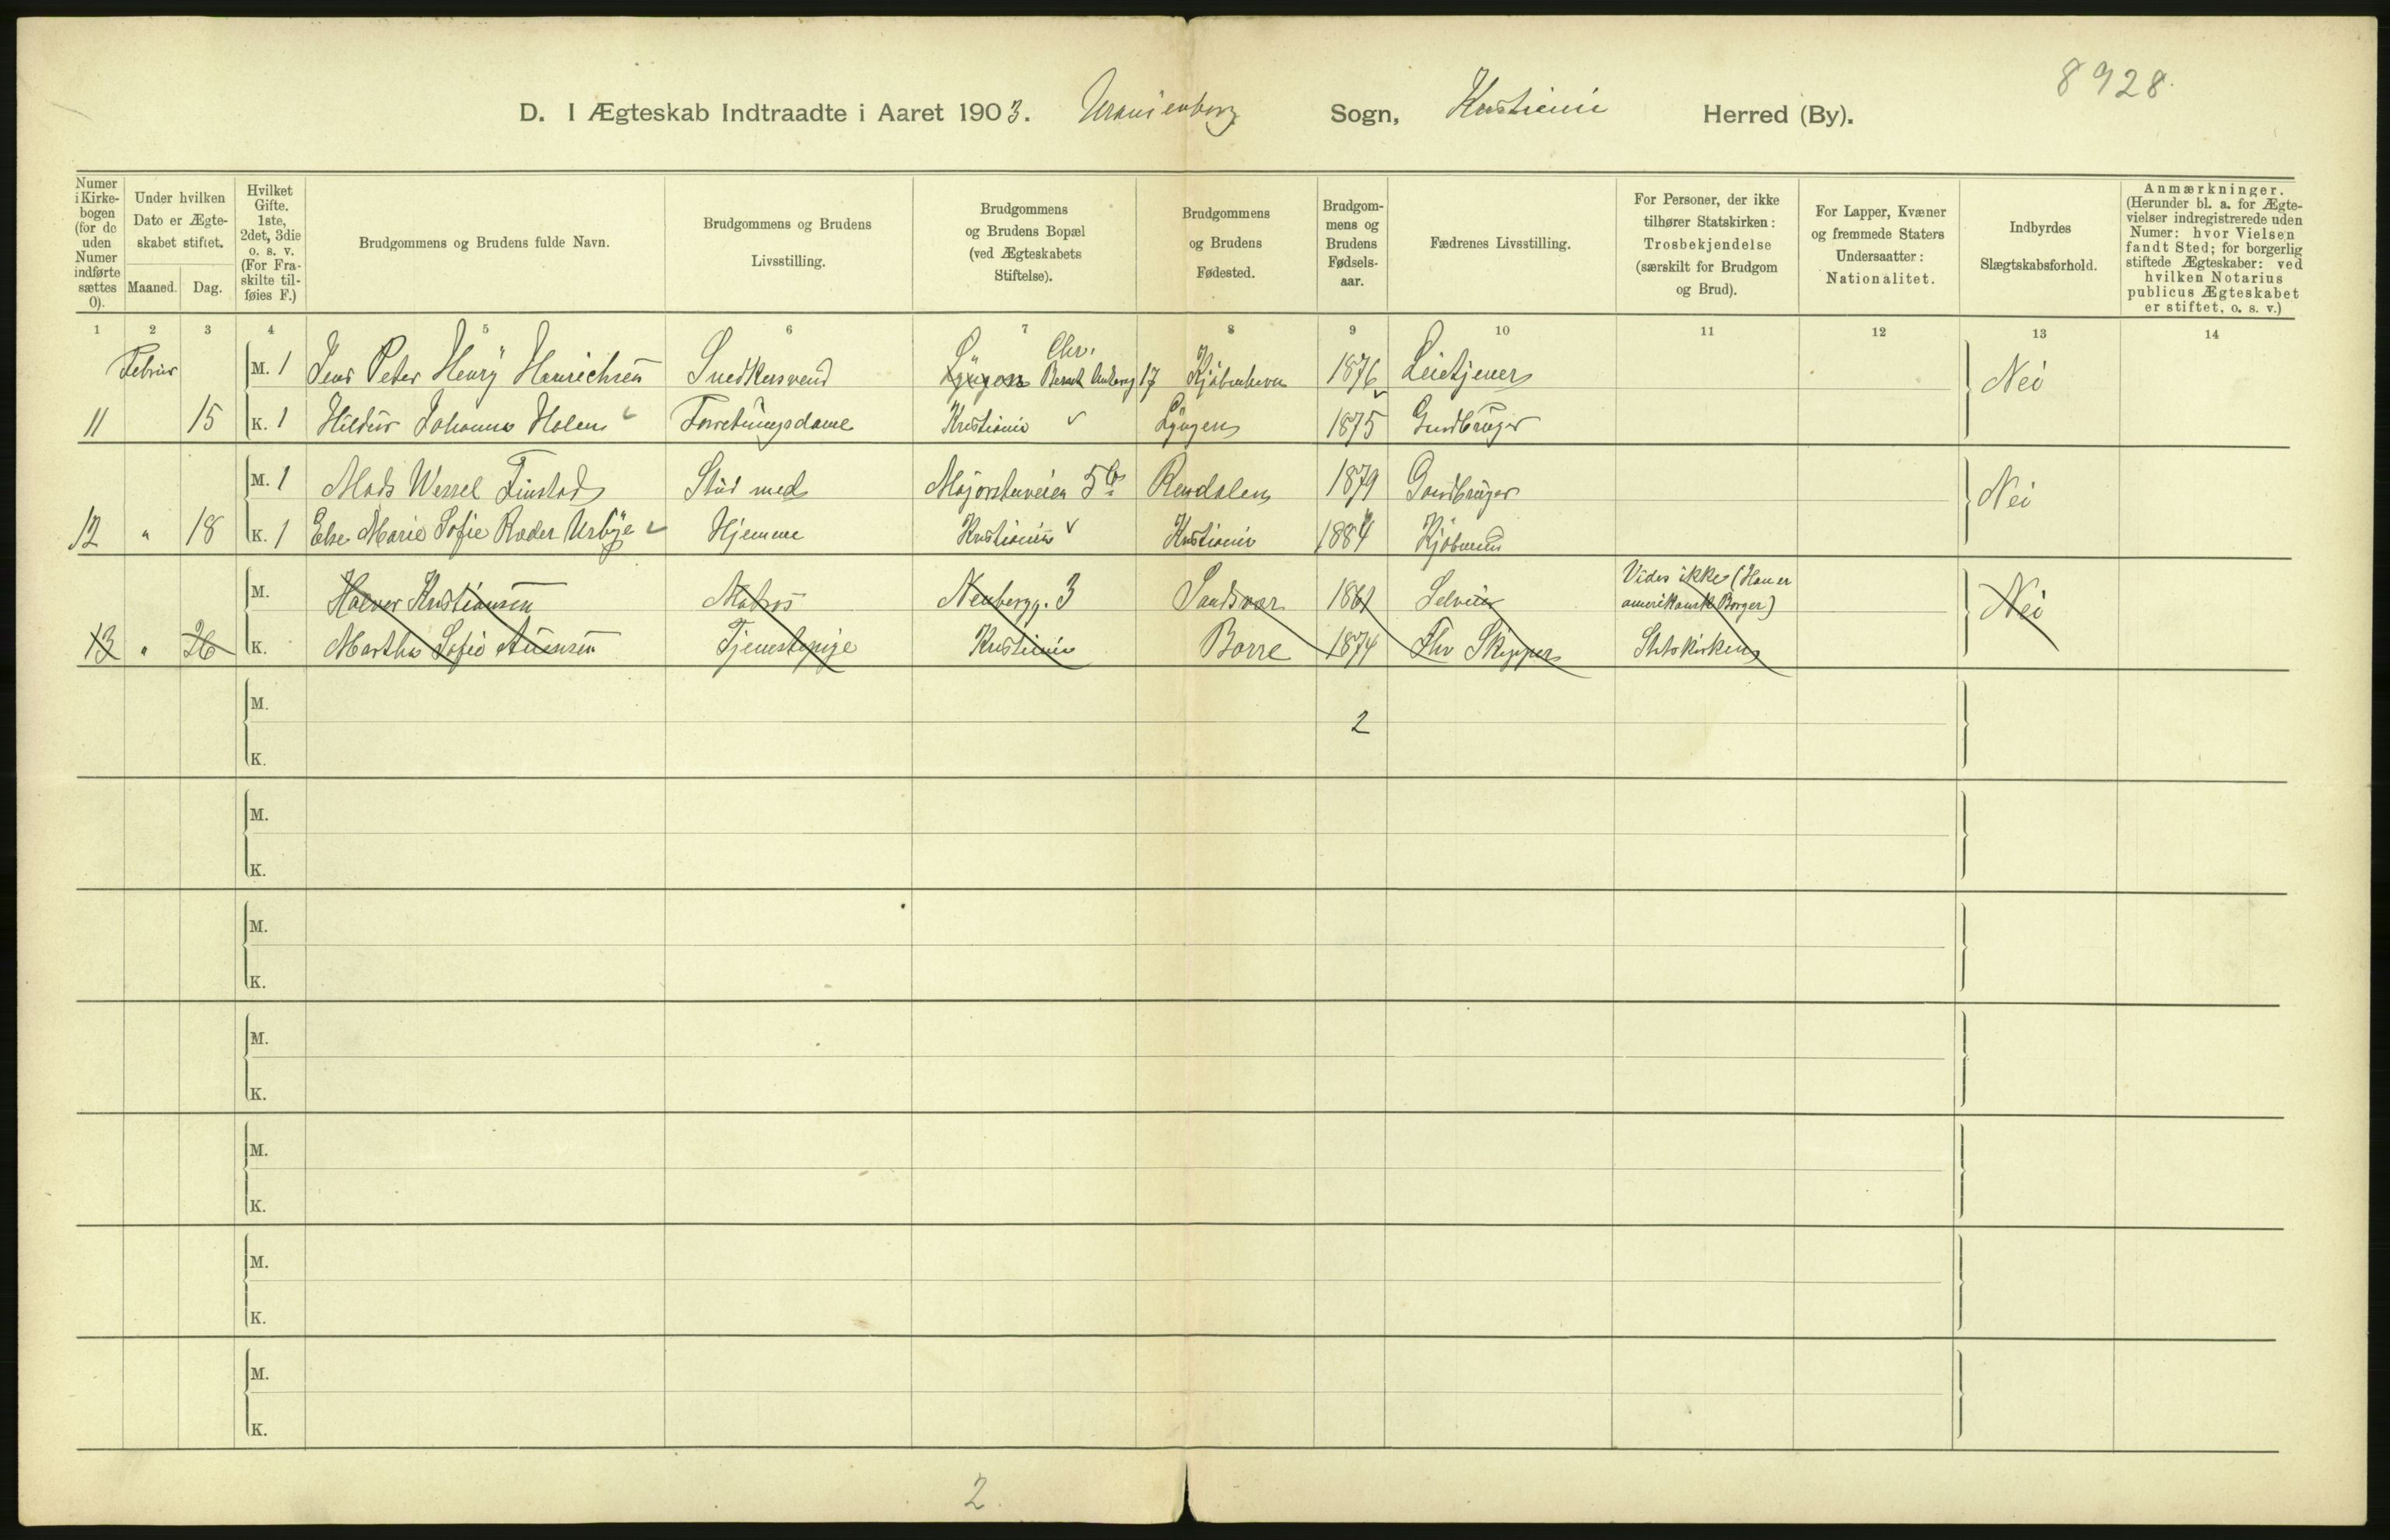 8928.
D. I Ægteskab Indtraadte i Aaret 1903. Uranienborg Sogn, Kristiania Herred (By).
Numer i Kirke-bogen (for de uden Numer indførte sættes 0).
Under hvilken Dato er Ægte-skabet stiftet.
Maaned. Dag.
Hvilket Gifte. 1ste, 2det, 3die o. s. v. (For Fra-skilte til-føies F.)
Brudgommens og Brudens fulde Navn.
Brudgommens og Brudens Livsstilling.
Brudgommens og Brudens Bopæl (ved Ægteskabets Stiftelse).
Brudgommens og Brudens Fødested.
Brudgom-mens og Brudens Fødsels-aar.
Fædrenes Livsstilling.
For Personer, der ikke tilhører Statskirken: Trosbekjendelse (særskilt for Brudgom og Brud).
For Lapper, Kvæner og fremmede Staters Undersaatter: Nationalitet.
Indbyrdes Slægtskabsforhold.
Anmærkninger. (Herunder bl. a. for Ægte-vielser indregistrerede uden Numer: hvor Vielsen fandt Sted; for borgerlig stiftede Ægteskaber: ved hvilken Notarius publicus Ægteskabet er stiftet, o. s. v.)
1 2 3 4 5 6 7 8 9 10 11 12 13 14
Februar M. 1 Jens Peter Henry Henrichsen Snedkersvend Lyngen Chr. 17 Kjøbenhavn 1876 Leietjener Nei
11 15 K. 1 Hildur Johanna Holen Forretningsdame Kristiania Lyngen 1875 Gaardbruger
M. 1 Mads Wessel Finstad Stud med Majorstuveien 5b Rendalen 1879 Gaardbruger Nei
12 " 18 K. 1 Else Marie Sofie Røder Urbye Hjemme Kristiania Kristiania 1884 Kjøbmand
M. Halvor Kristiansen Matros Neubergg. 3 Sandsvær 1861 Selveier Vides ikke (Han er amerikansk Borger) Nei
13 " 26 K. Martha Sofie Tjenestepige Kristiania Borre 1874 Fhv Skipper Statskirken
M.
2
K.
M.
K.
M.
K.
M.
K.
M.
K.
M.
K.
M.
K.
2.